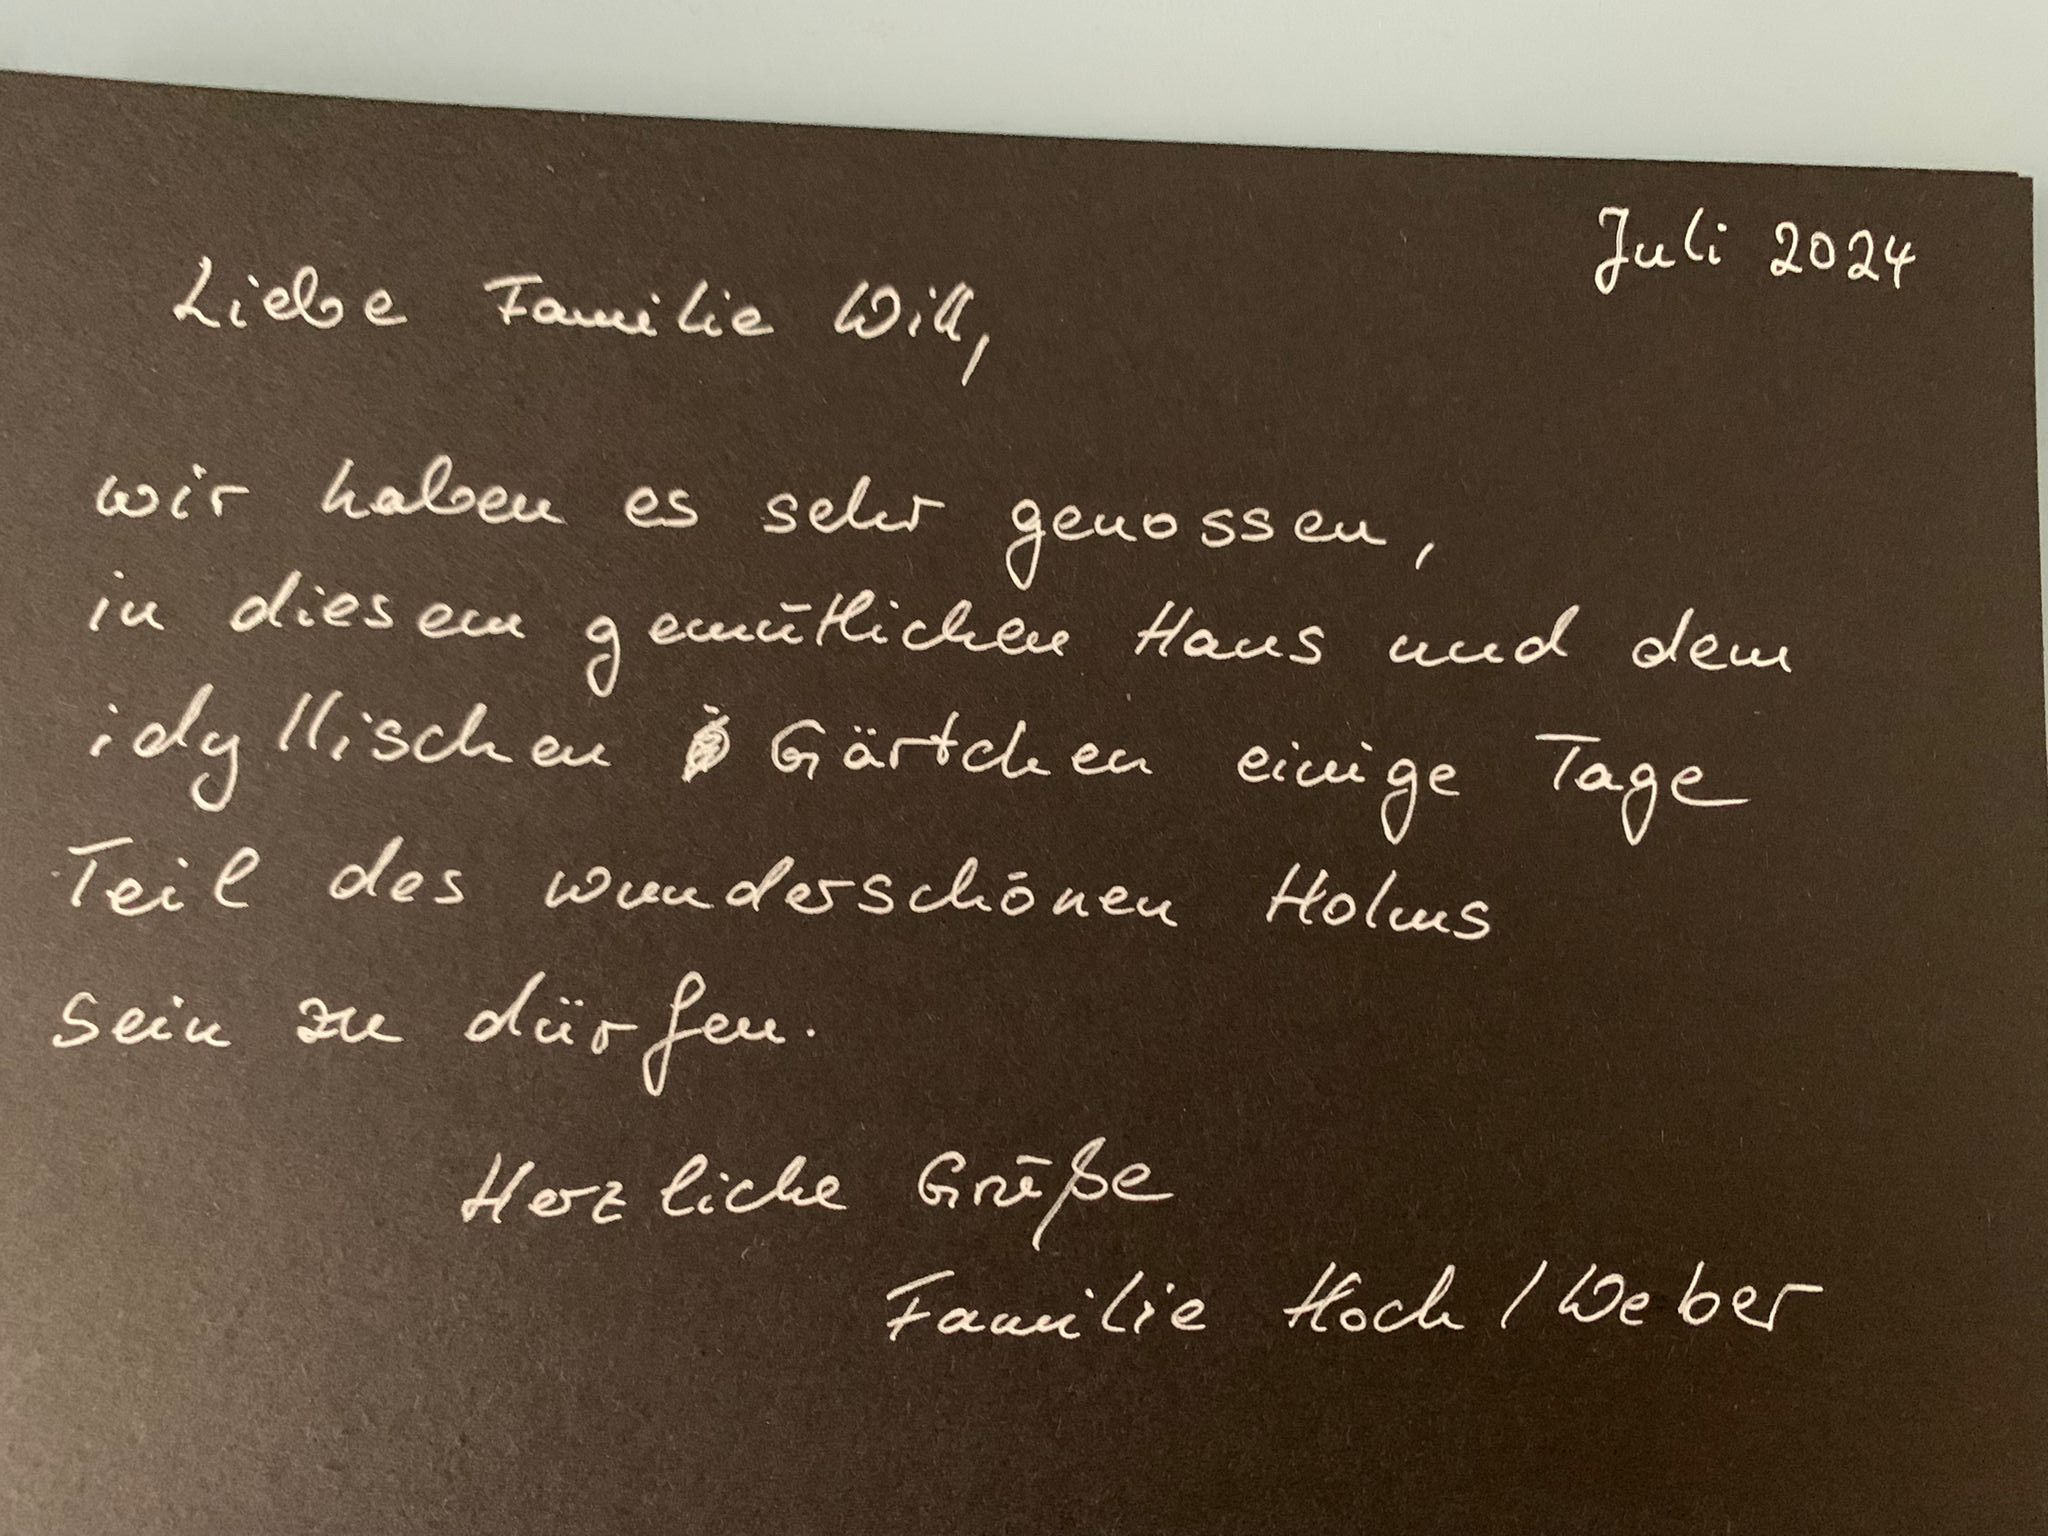 Juli 2024
Liebe Familie Will,
wir haben es sehr genossen,
in diesem gemütlichen Haus und dem
idyllischen Gärtchen einige Tage
Teil des wunderschönen Holms
sein zu dürfen.
Herzliche Grüße
Familie Hoch / Weber